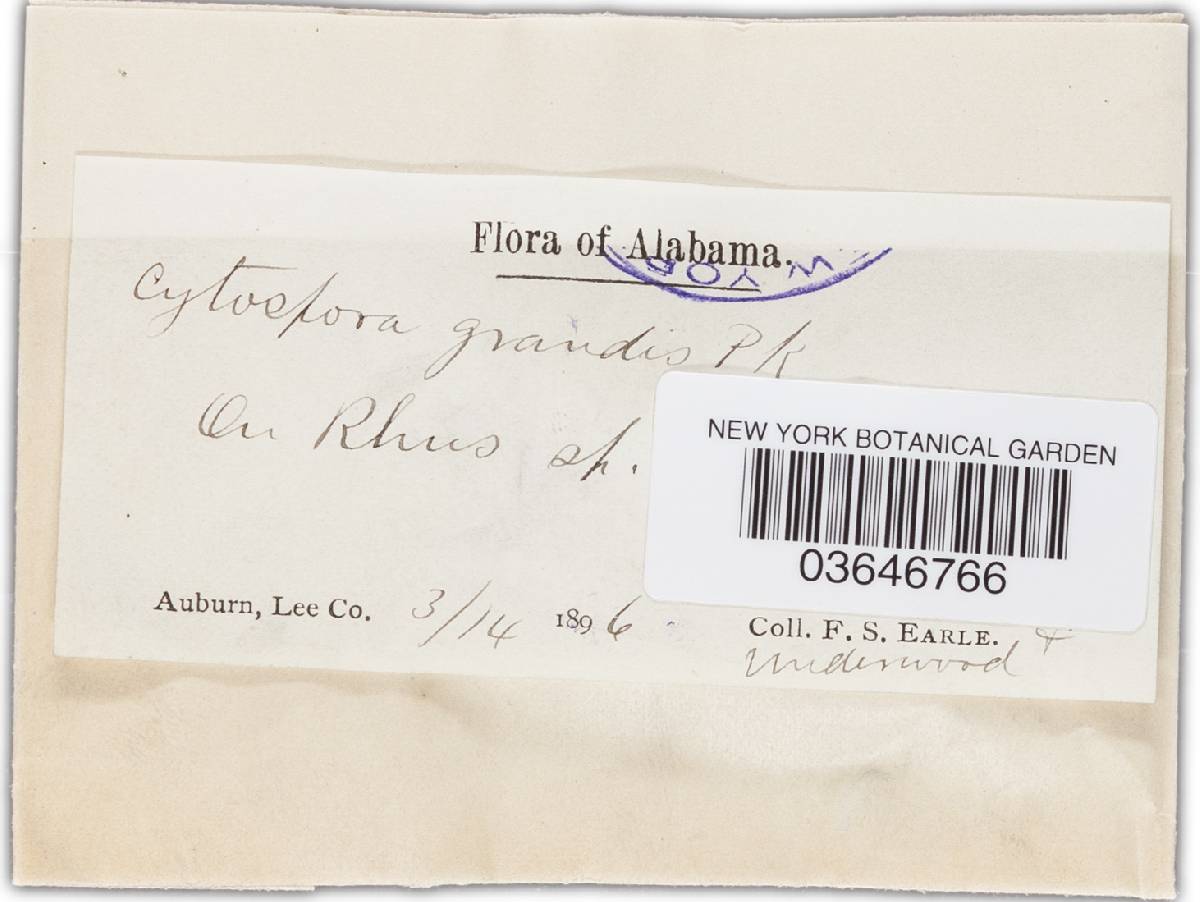 Flora of Alabama.
W YOR
Cytospora grandis Pk
On Rhus sp.
NEW YORK BOTANICAL GARDEN
03646766
Auburn, Lee Co. 3/14 1896 Coll. F. S. EARLE. &
Underwood